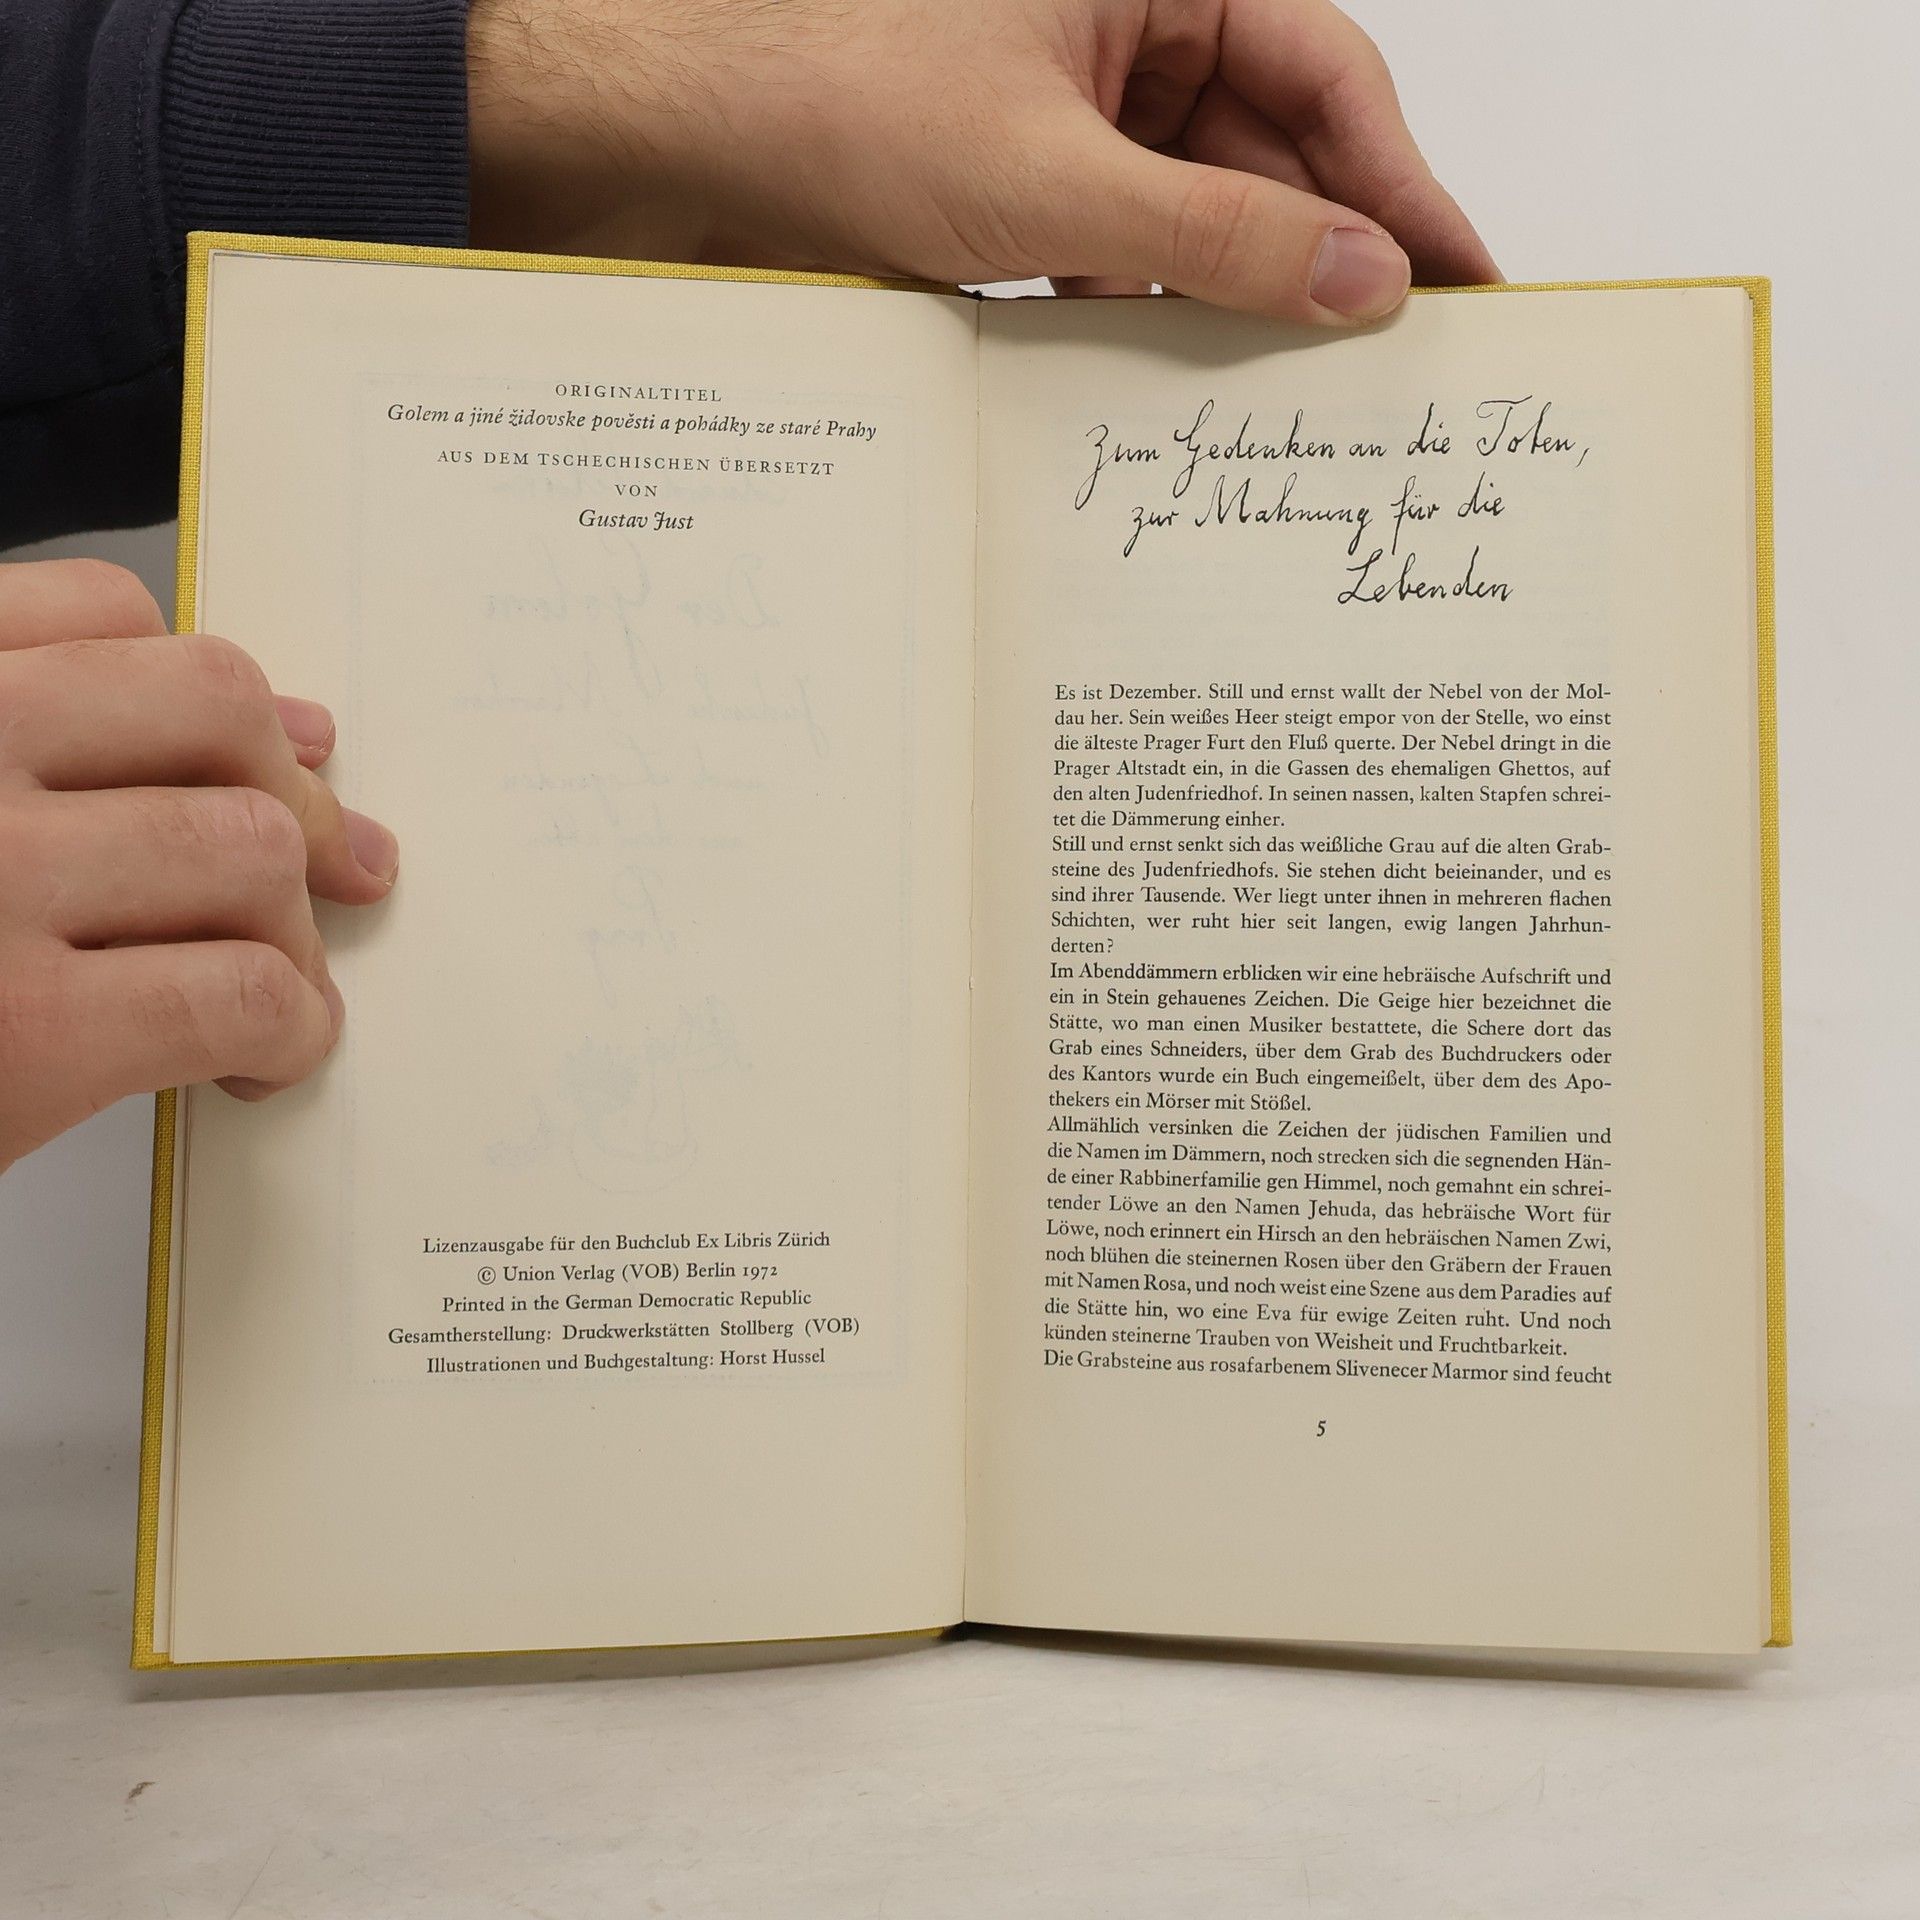 ORIGINALTITEL
Golem a jiné židovske pověsti a pohádky ze staré Prahy
AUS DEM TSCHECHISCHEN ÜBERSETZT
VON
Gustav Just
Lizenzausgabe für den Buchclub Ex Libris Zürich
© Union Verlag (VOB) Berlin 1972
Printed in the German Democratic Republic
Gesamtherstellung: Druckwerkstätten Stollberg (VOB)
Illustrationen und Buchgestaltung: Horst Hussel
Zum Gedenken an die Toten,
zur Mahnung für die
Lebenden
Es ist Dezember. Still und ernst wallt der Nebel von der Mol-
dau her. Sein weißes Heer steigt empor von der Stelle, wo einst
die älteste Prager Furt den Fluß querte. Der Nebel dringt in die
Prager Altstadt ein, in die Gassen des ehemaligen Ghettos, auf
den alten Judenfriedhof. In seinen nassen, kalten Stapfen schrei-
tet die Dämmerung einher.
Still und ernst senkt sich das weißliche Grau auf die alten Grab-
steine des Judenfriedhofs. Sie stehen dicht beieinander, und es
sind ihrer Tausende. Wer liegt unter ihnen in mehreren flachen
Schichten, wer ruht hier seit langen, ewig langen Jahrhun-
derten?
Im Abenddämmern erblicken wir eine hebräische Aufschrift und
ein in Stein gehauenes Zeichen. Die Geige hier bezeichnet die
Stätte, wo man einen Musiker bestattete, die Schere dort das
Grab eines Schneiders, über dem Grab des Buchdruckers oder
des Kantors wurde ein Buch eingemeißelt, über dem des Apo-
thekers ein Mörser mit Stößel.
Allmählich versinken die Zeichen der jüdischen Familien und
die Namen im Dämmern, noch strecken sich die segnenden Hän-
de einer Rabbinerfamilie gen Himmel, noch gemahnt ein schrei-
tender Löwe an den Namen Jehuda, das hebräische Wort für
Löwe, noch erinnert ein Hirsch an den hebräischen Namen Zwi,
noch blühen die steinernen Rosen über den Gräbern der Frauen
mit Namen Rosa, und noch weist eine Szene aus dem Paradies auf
die Stätte hin, wo eine Eva für ewige Zeiten ruht. Und noch
künden steinerne Trauben von Weisheit und Fruchtbarkeit.
Die Grabsteine aus rosafarbenem Slivenecer Marmor sind feucht
5